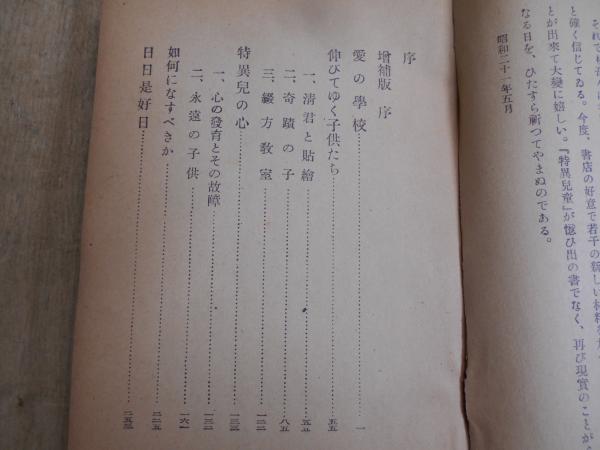 それで
と確く信じてゐる。今度、書店の好意で若干の新しい材料を
とが出來て大變に嬉しい。『特異兒童』が憶ひ出の書でなく、再び現實のことが
なる日を、ひたすら祈つてやまぬのである。
昭和二十一年五月
序
增補版 序
愛の學校 一
伸びてゆく子供たち 五五
一、淸君と貼繪 五五
二、奇蹟の子 八五
三、綴方敎室 一二二
特異兒の心 一三二
一、心の發育とその故障 一三二
二、永遠の子供 一六一
如何になすべきか 二二五
日日是好日 二五三